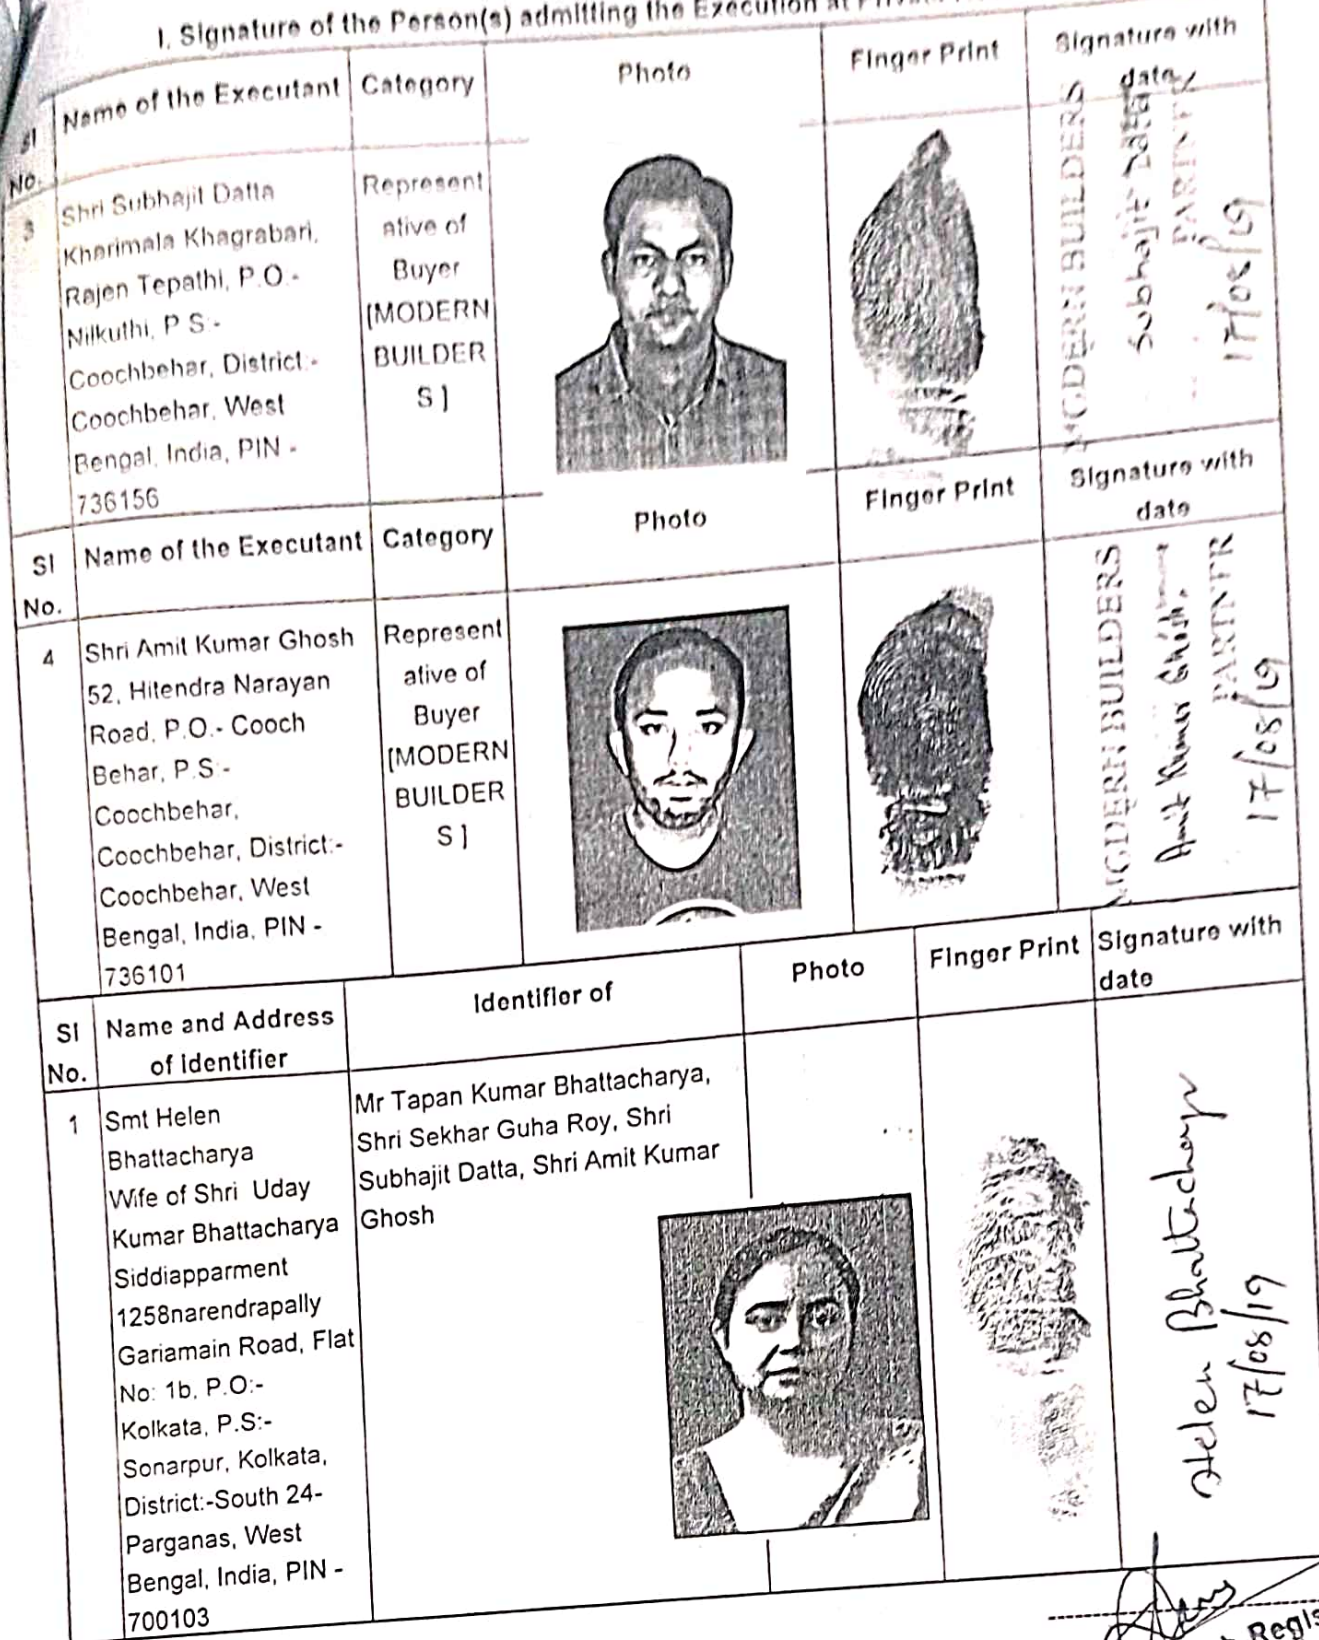 I. Signature of the Person(s) admitting the Execution at
Sl
No.
Name of the Executant
Category
Photo
Finger Print
Signature with
date
3
Shri Subhajit Datta
Kharimala Khagrabari,
Rajen Tepathi, P.O.-
Nilkuthi, P.S:-
Coochbehar, District:-
Coochbehar, West
Bengal, India, PIN -
736156
Represent
ative of
Buyer
[MODERN
BUILDER
S ]
MODERN BUILDERS
Subhajit Datta
PARTNER
17/08/19
Sl
No.
Name of the Executant
Category
Photo
Finger Print
Signature with
date
4
Shri Amit Kumar Ghosh
52, Hitendra Narayan
Road, P.O.- Cooch
Behar, P.S:-
Coochbehar,
Coochbehar, District:-
Coochbehar, West
Bengal, India, PIN -
736101
Represent
ative of
Buyer
[MODERN
BUILDER
S ]
MODERN BUILDERS
Amit Kumar Ghosh.
PARTNER
17/08/19
Sl
No.
Name and Address
of identifier
Identifier of
Photo
Finger Print
Signature with
date
1
Smt Helen
Bhattacharya
Wife of Shri Uday
Kumar Bhattacharya
Siddiapparment
1258narendrapally
Gariamain Road, Flat
No: 1b, P.O:-
Kolkata, P.S:-
Sonarpur, Kolkata,
District:-South 24-
Parganas, West
Bengal, India, PIN -
700103
Mr Tapan Kumar Bhattacharya,
Shri Sekhar Guha Roy, Shri
Subhajit Datta, Shri Amit Kumar
Ghosh
Helen Bhattacharya
17/08/19